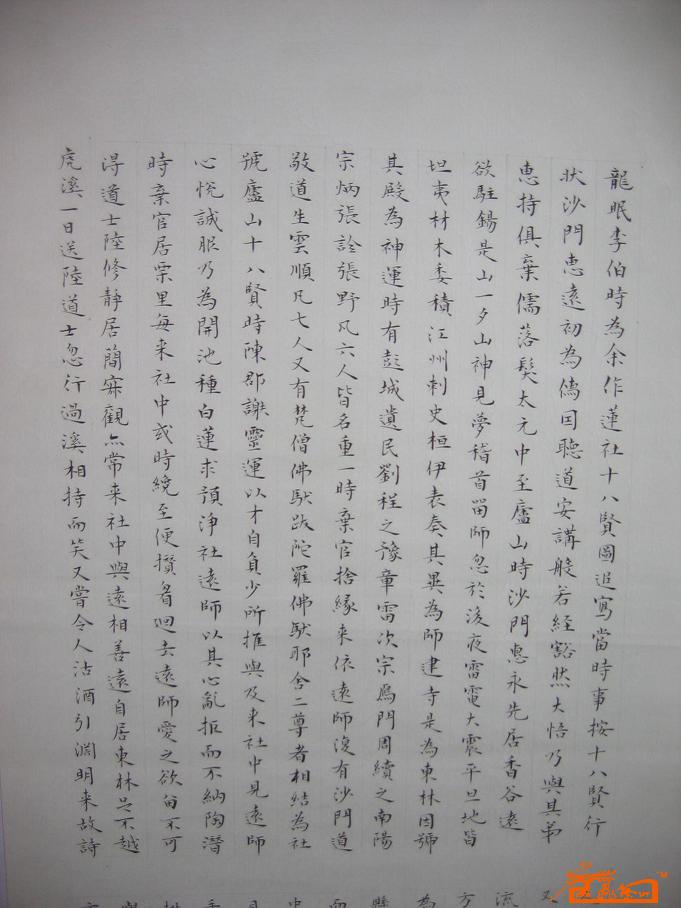 龍眠李伯時為余作蓮社十八賢圖追寫當時事按十八賢行
狀沙門惠遠初為儒因聽道安講般若経豁然大悟乃與其弟
惠持俱棄儒落髮太元中至廬山時沙門惠永先居香谷遠
欲駐錫是山一夕山神見夢稽首留師忽於後夜雷電大震平旦地皆
坦夷材木委積江州刺史桓伊表奏其異為師建寺是為東林因號
其殿為神運時有彭城遺民劉程之豫章雷次宗鴈門周續之南陽
宗炳張詮張野凡六人皆名重一時棄官捨緣来依遠師復有沙門道
敬道生曇順凡七人又有梵僧佛馱跋陀羅佛馱耶舍二尊者相結為社
號廬山十八賢時陳郡謝靈運以才自負少所推與及来社中見遠師
心悅誠服乃為開池種白蓮求預淨社遠師以其心亂拒而不納陶潛
時棄官居栗里每来社中或時纔至便攢眉迴去遠師愛之欲留不可
得道士陸修静居簡寂觀亦常来社中與遠相善遠自居東林足不越
虎溪一日送陸道士忽行過溪相持而笑又嘗令人沽酒引淵明来故詩